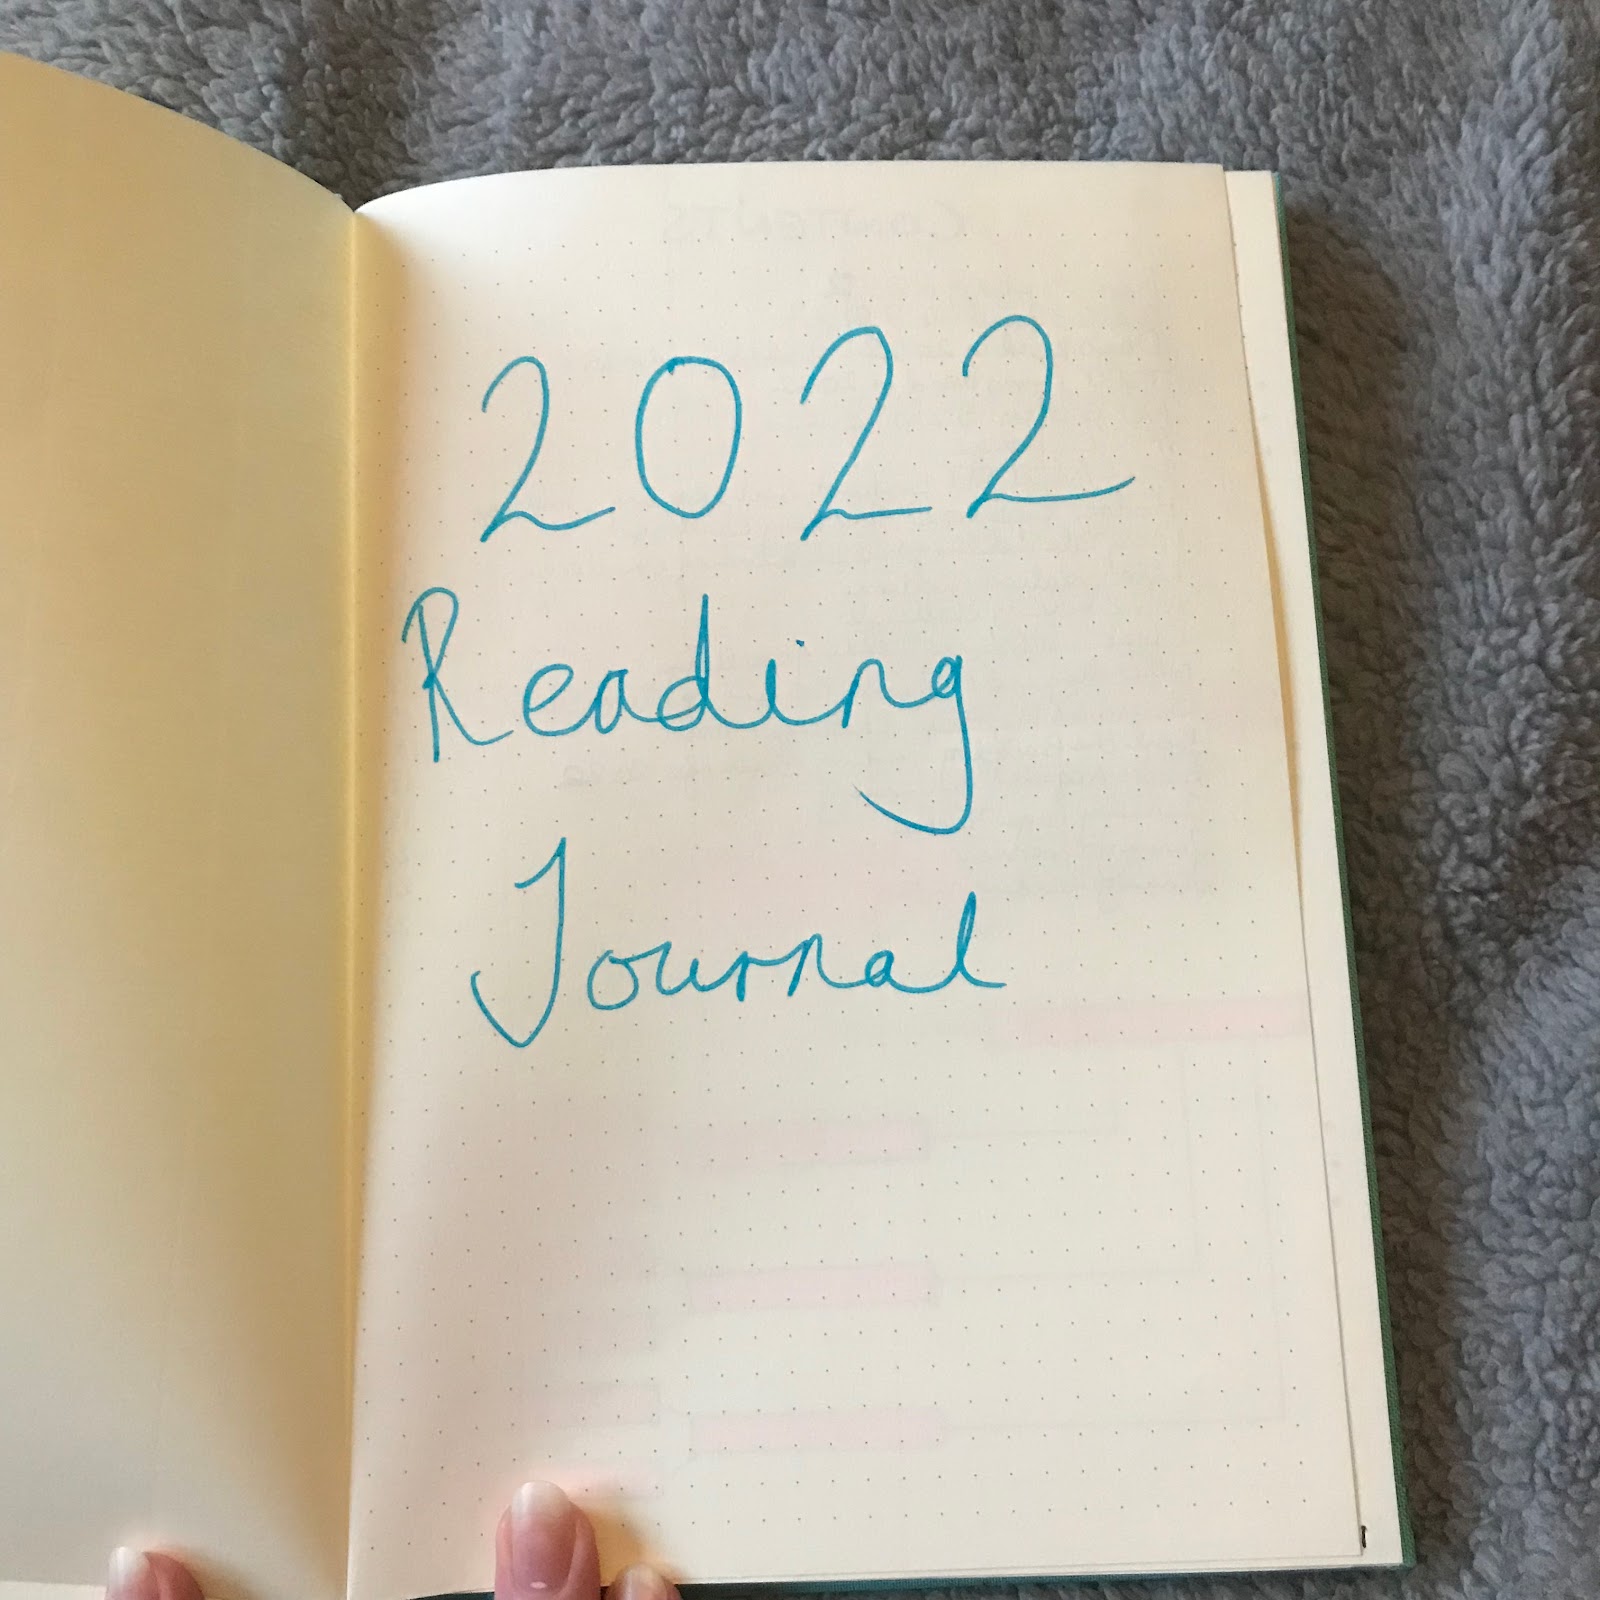 2022
Reading
Journal